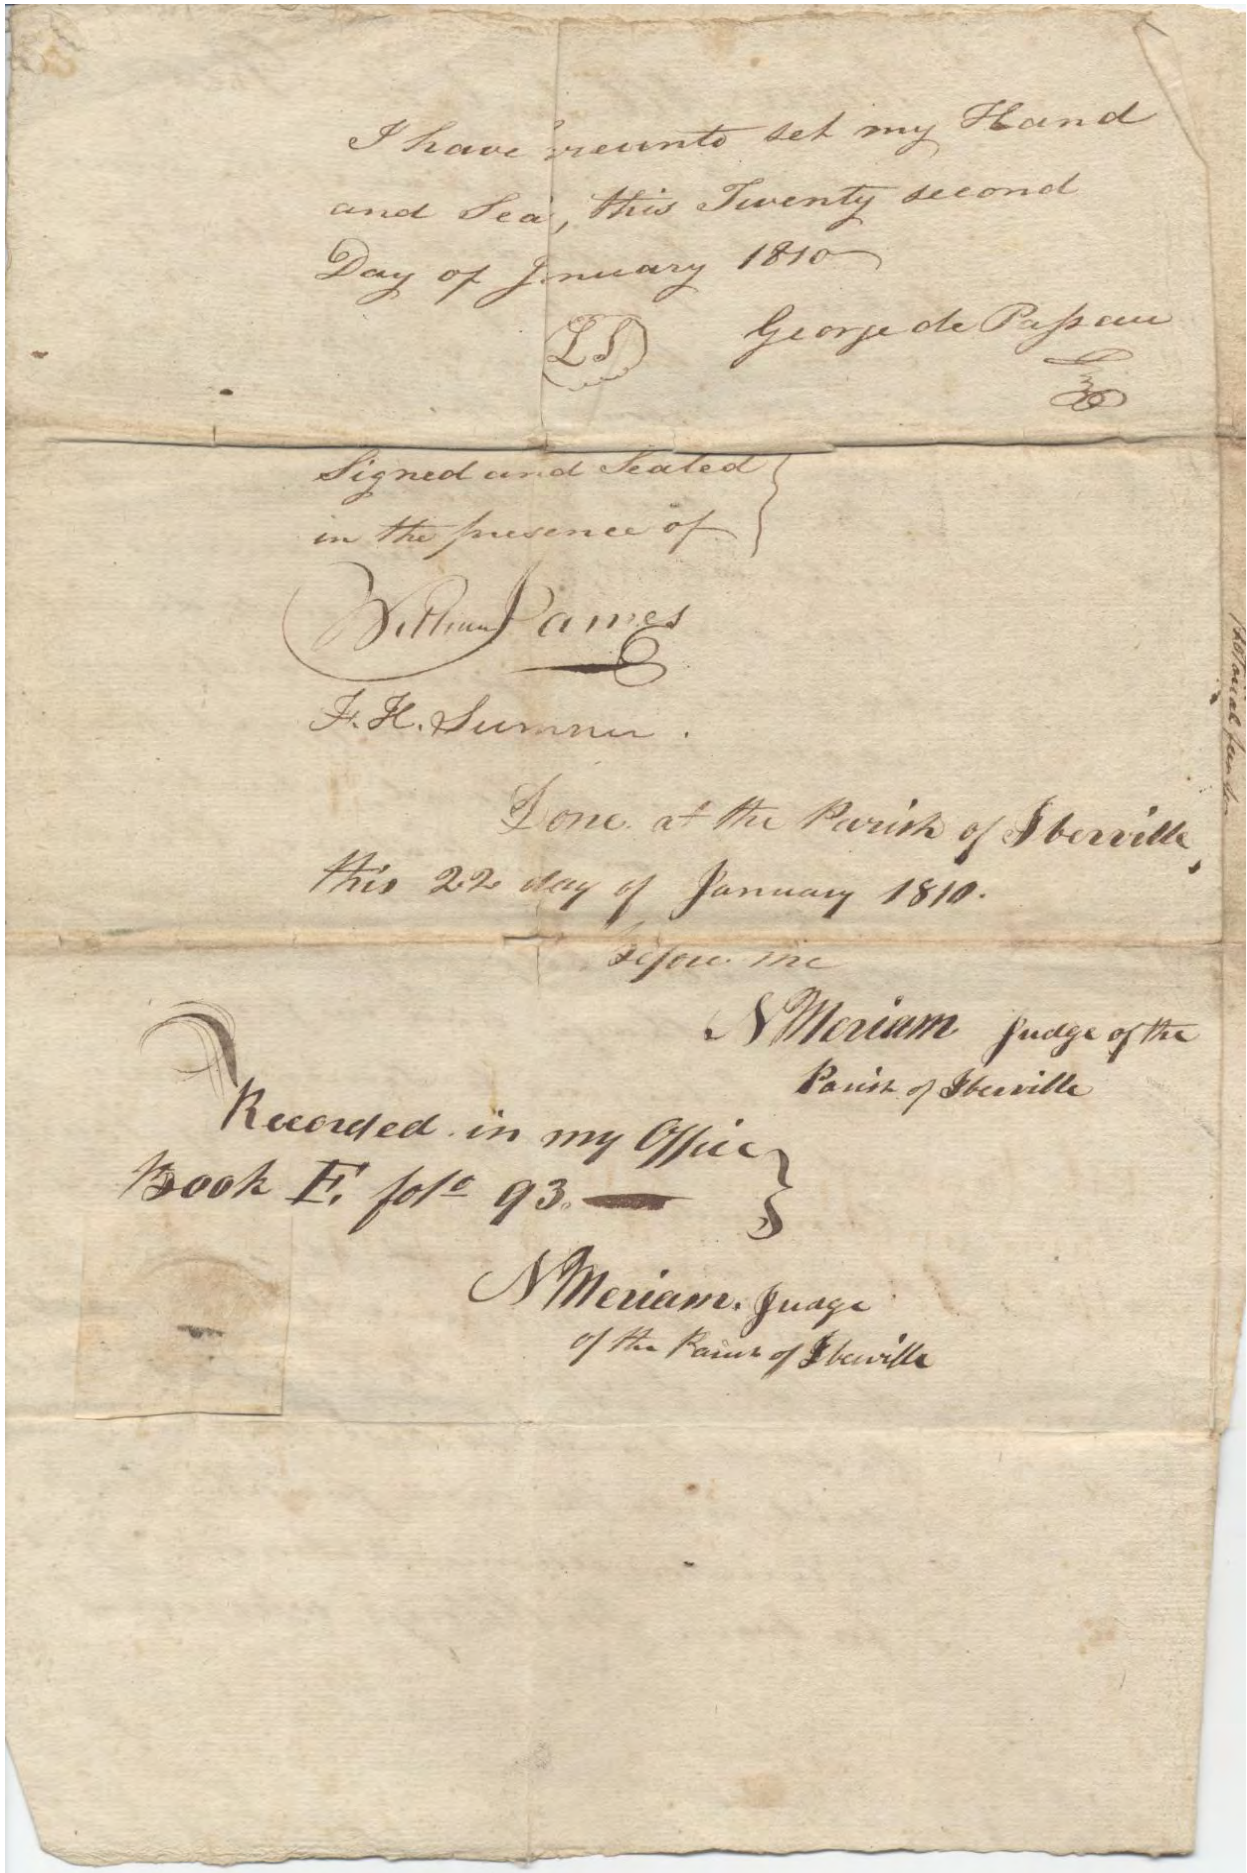 I have hereunto set my Hand
and Seal, this Twenty second
Day of January 1810
LS George de Passau
Signed and Sealed
in the presence of
William James
F. H. Sumner.
Done at the Parish of Iberville,
this 22 day of January 1810.
Before me
N Meriam Judge of the
Parish of Iberville
Recorded in my Office
Book E. folo 93.
N Meriam. Judge
of the Parish of Iberville